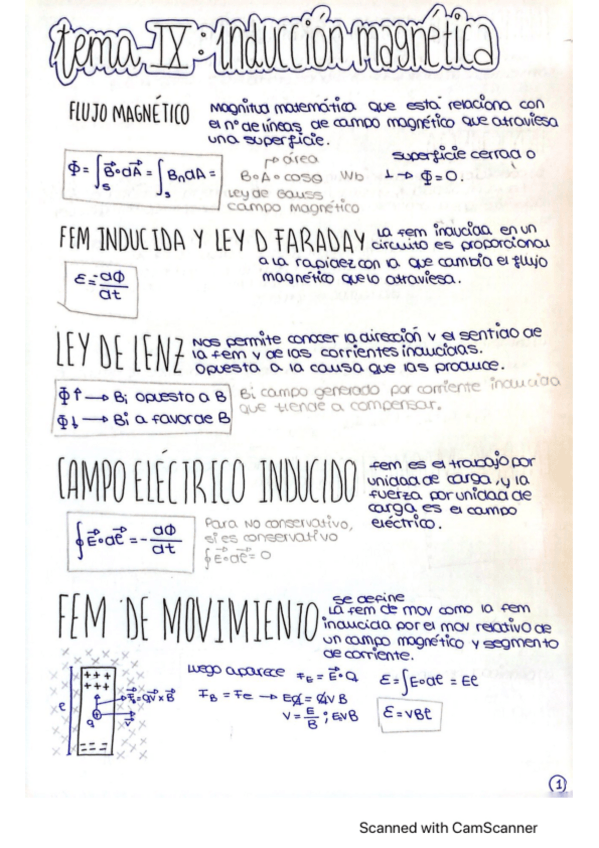 tema IX: inducción magnética
FLUJO MAGNÉTICO
Magnitud matemática que está relaciona con
el nº de líneas de campo magnético que atraviesa
una superficie.
Φ = ∫ₛ B⃗∘dA⃗ = ∫ₛ BₙdA =
→ área
B∘A∘cosα Wb
Ley de Gauss
campo magnético
superficie cerrada o
⊥ → Φ = 0.
FEM INDUCIDA Y LEY D FARADAY
La fem inducida en un
circuito es proporcional
a la rapidez con la que cambia el flujo
magnético que lo atraviesa.
ε = -dΦ/dt
LEY DE LENZ
Nos permite conocer la dirección y el sentido de
la fem y de las corrientes inducidas.
Opuesta a la causa que las produce.
Φ↑ → Bi opuesto a B
Φ↓ → Bi a favor de B
Bi campo generado por corriente inducida
que tiende a compensar.
CAMPO ELÉCTRICO INDUCIDO
fem es el trabajo por
unidad de carga, y la
fuerza por unidad de
carga es el campo
eléctrico.
∮ E⃗∘dℓ⃗ = -dΦ/dt
Para NO conservativo,
si es conservativo
∮ E⃗∘dℓ⃗ = 0
FEM DE MOVIMIENTO
se define
La fem de mov como la fem
inducida por el mov relativo de
un campo magnético y segmento
de corriente.
Luego aparece F_E = E⃗∘Q
F_B = F_e → Eq = qVB
V = E/B ; EVB
ε = ∫E∘dℓ = Eℓ
ε = VBℓ
ℓ
+++
+++
F⃗_B = QV⃗ × B⃗
q
+
v⃗
===
1
Scanned with CamScanner